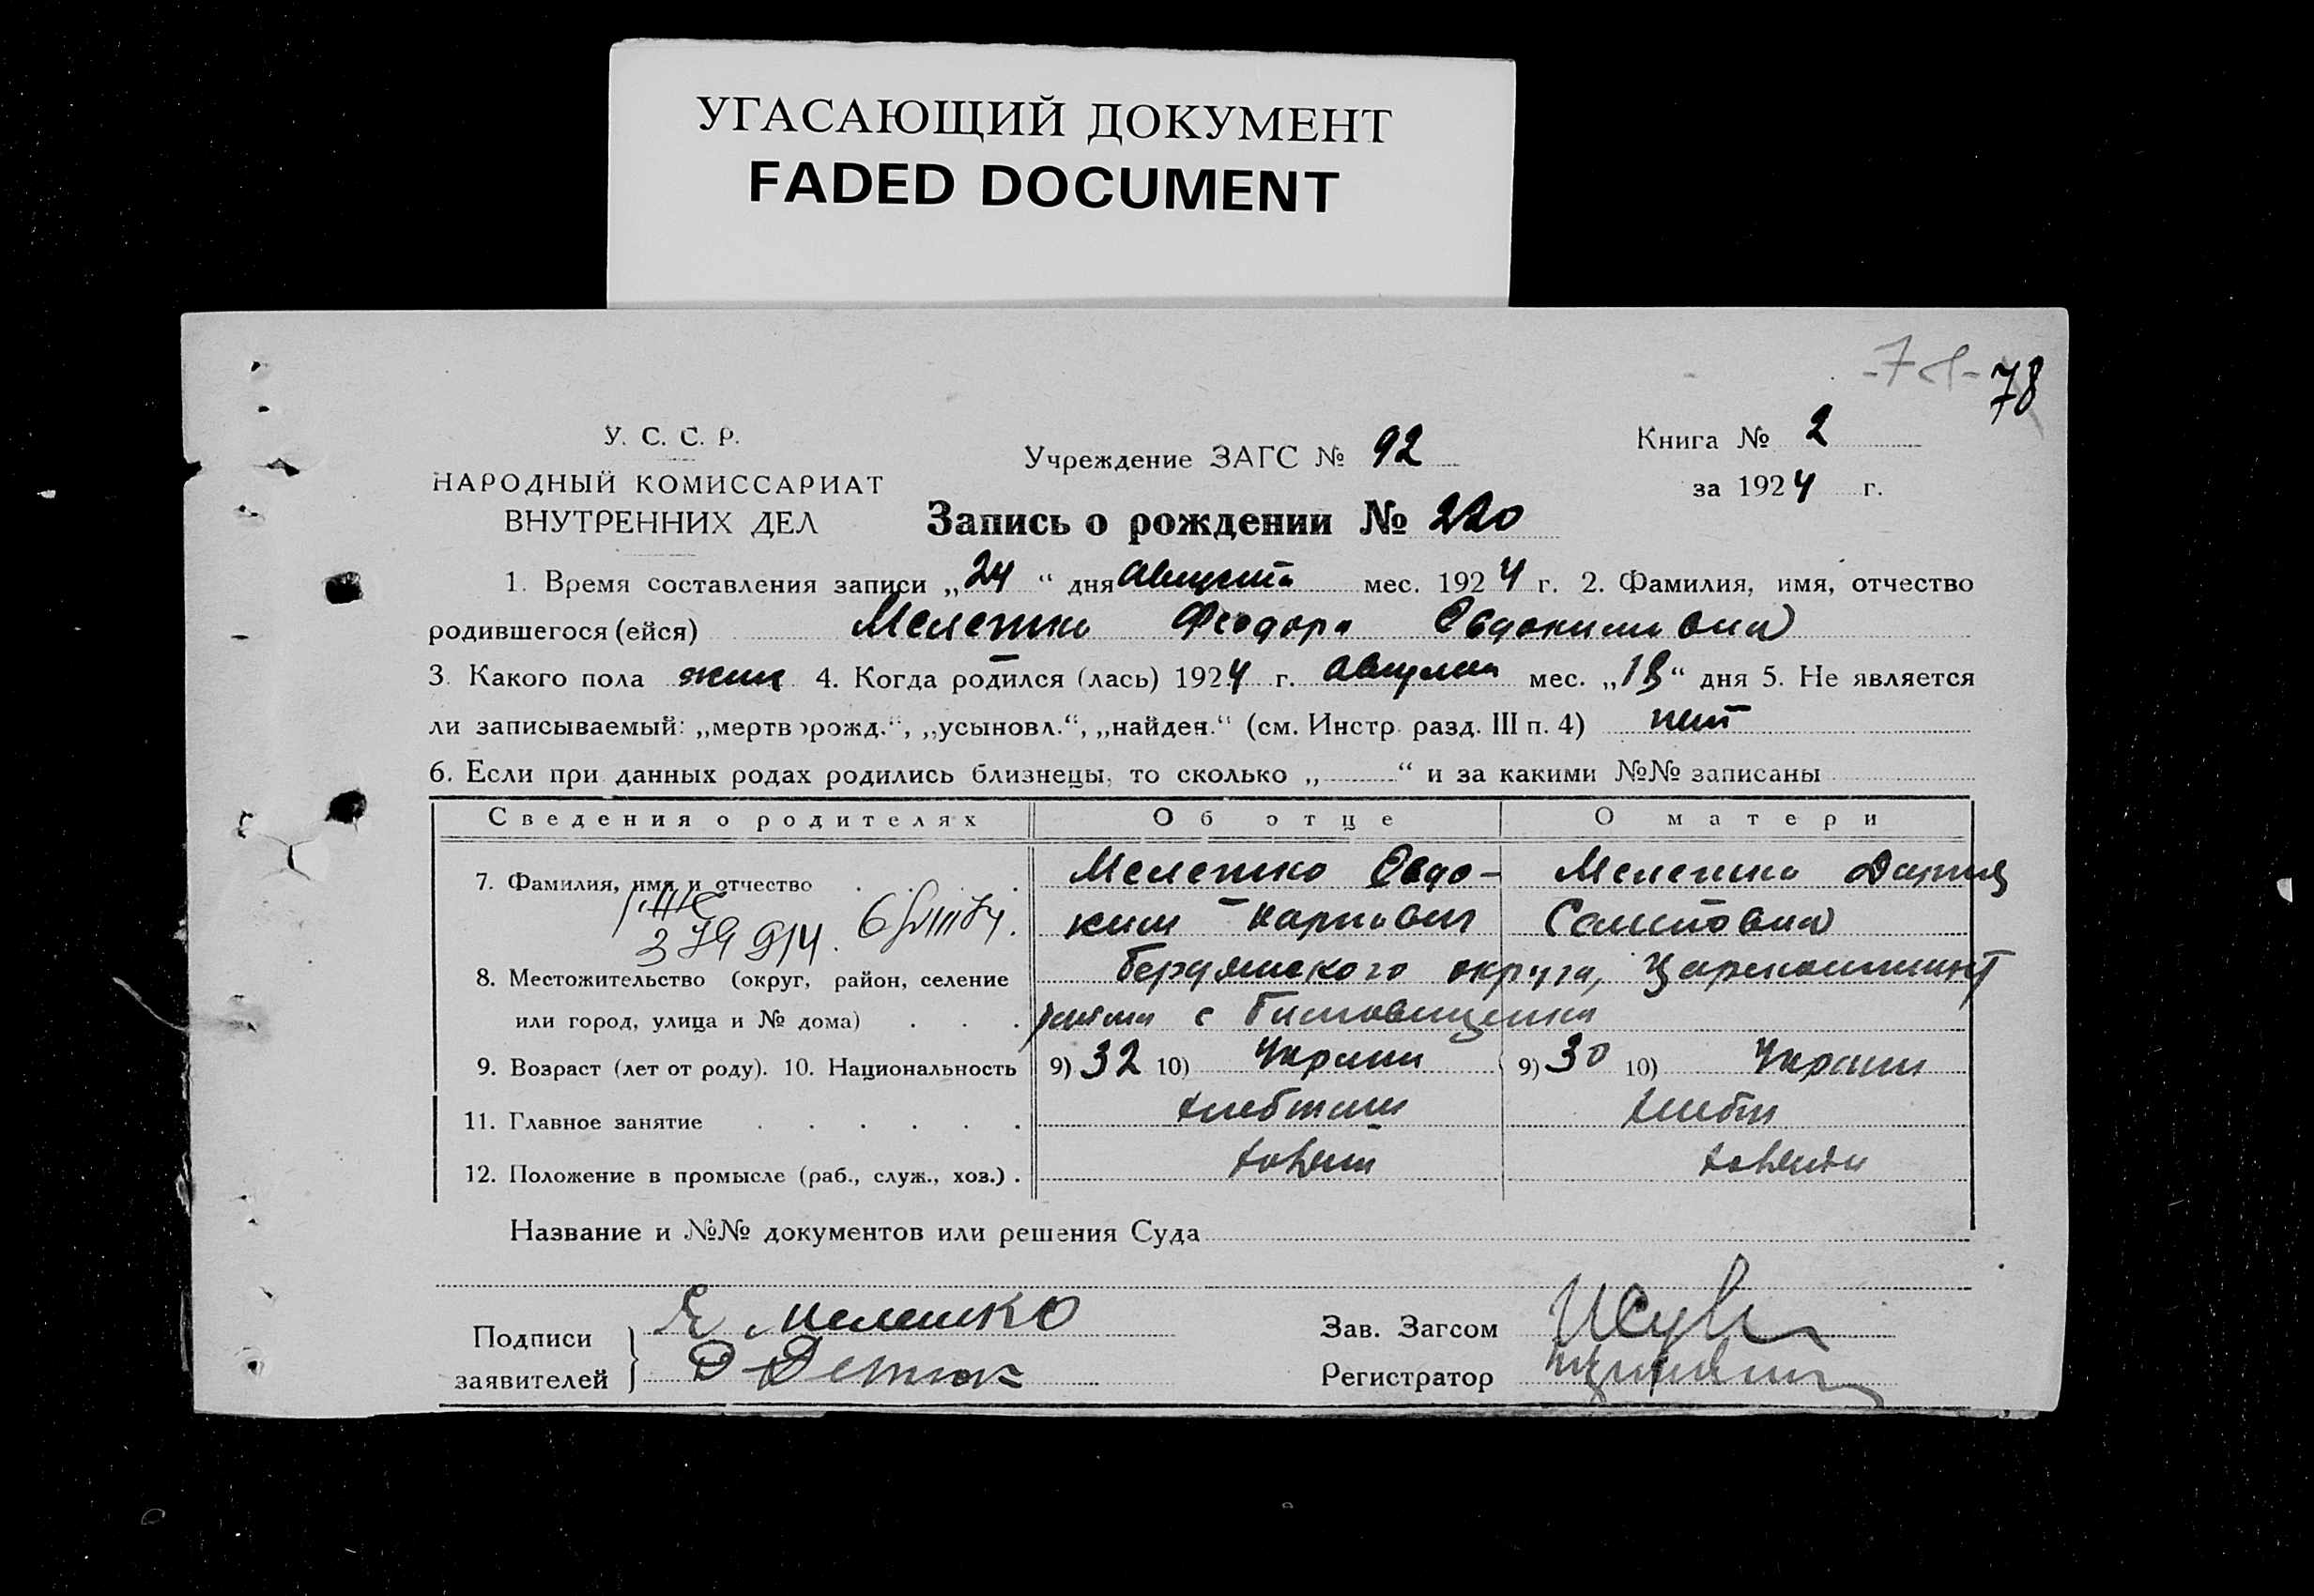 УГАСАЮЩИЙ ДОКУМЕНТ
FADED DOCUMENT
78
У. С. С. Р.
НАРОДНЫЙ КОМИССАРИАТ
ВНУТРЕННИХ ДЕЛ
Учреждение ЗАГС № 92
Книга № 2
за 1924 г.
Запись о рождении № 220
1. Время составления записи „24“ дня августа мес. 1924 г. 2. Фамилия, имя, отчество
родившегося (ейся) Мелешко Феодора Евдокимовна
3. Какого пола жен 4. Когда родился (лась) 1924 г. августа мес. „18“ дня 5. Не является
ли записываемый: „мертворожд.“, „усыновл.“, „найден.“ (см. Инстр. разд. III п. 4) нет
6. Если при данных родах родились близнецы, то сколько „ “ и за какими №№ записаны
Сведения о родителях Об отце О матери
7. Фамилия, имя и отчество Мелешко Евдо- Мелешко Дария
ким Карпович Саитовна
8. Местожительство (округ, район, селение Бердянского округа,
или город, улица и № дома) с
9. Возраст (лет от роду). 10. Национальность 9) 32 10) Украин 9) 30 10) Украин
11. Главное занятие хлебпаш хлебп
12. Положение в промысле (раб., служ., хоз.)
Название и №№ документов или решения Суда
Подписи
заявителей
Е Мелешко
Зав. Загсом
Регистратор